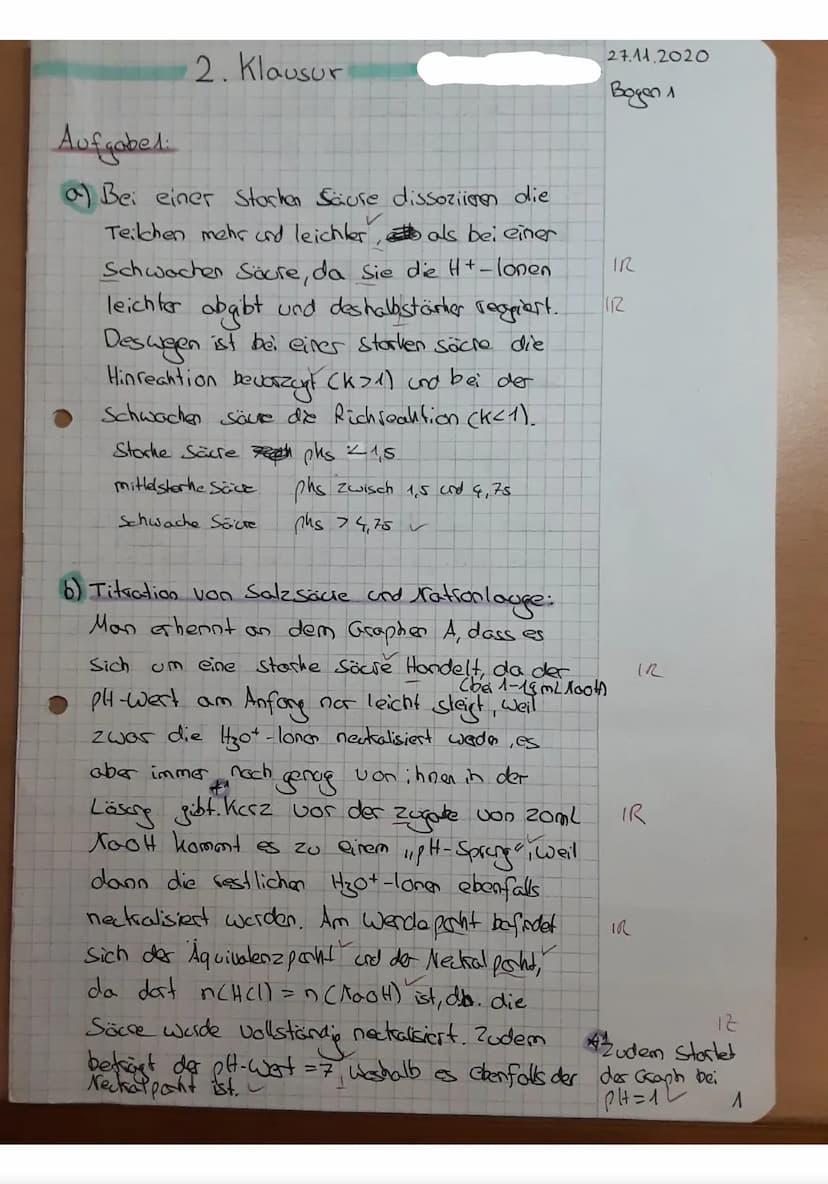 2. Klausur
27.11.2020
Bogen 1
Aufgabe 1:
a) Bei einer starken Säure dissoziieren die
Teilchen mehr und leichter, als bei einer
schwachen Säure, da sie die H+-Ionen
IR
leichter abgibt und deshalb stärker reagiert.
IR
Deswegen ist bei einer starken Säure die
Hinreaktion bevorzugt (K>1) und bei der
schwachen Säure die Rückreaktion (K<1).
Starke Säure pks < 1,5
mittelstarke Säure pks zwisch 1,5 und 4,75
schwache Säure pks > 4,75
b) Titration von Salzsäure und Natronlauge:
Man erkennt an dem Graphen A, dass es
sich um eine starke Säure Handelt, da der
IR
(bei 1-19mL NaOH)
pH-Wert am Anfang nur leicht steigt, weil
zwar die H3O+-Ionen neutralisiert werden, es
aber immer noch genug von ihnen in der
Lösung gibt. *1 Kurz vor der Zugabe von 20mL
IR
NaOH kommt es zu einem „pH-Sprung“, weil
dann die restlichen H3O+-Ionen ebenfalls
neutralisiert werden. Am Wendepunkt befindet
IR
sich der Äquivalenzpunkt und der Neutralpunkt,
da dort n(HCl) = n(NaOH) ist, d.h. die
Säure wurde vollständig neutralisiert. Zudem
beträgt der pH-Wert = 7, weshalb es ebenfalls der
Neutralpunkt ist.
IZ
*1 Zudem startet
der Graph bei
pH=1
1